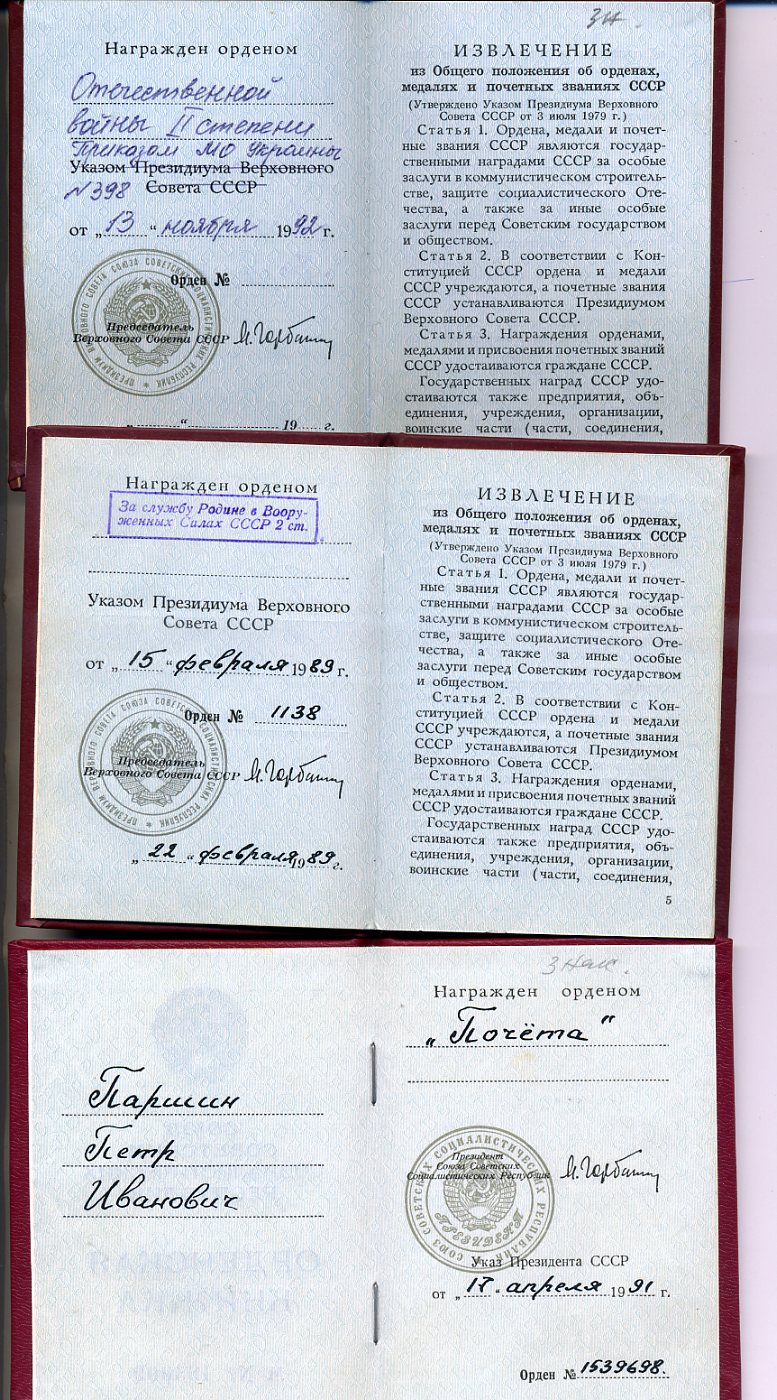 Награжден орденом
Отечественной
войны II степени
Приказом МО Украины
Указом Президиума Верховного
№398 Совета СССР
от „13“ ноября 1992 г.
Орден №
ПРЕЗИДИУМ ВЕРХОВНОГО СОВЕТА СОЮЗА СОВЕТСКИХ СОЦИАЛИСТИЧЕСКИХ РЕСПУБЛИК
Председатель
Верховного Совета СССР
„ “ 19 г.
Зн.
ИЗВЛЕЧЕНИЕ
из Общего положения об орденах,
медалях и почетных званиях СССР
(Утверждено Указом Президиума Верховного
Совета СССР от 3 июля 1979 г.)
Статья 1. Ордена, медали и почет-
ные звания СССР являются государ-
ственными наградами СССР за особые
заслуги в коммунистическом строитель-
стве, защите социалистического Оте-
чества, а также за иные особые
заслуги перед Советским государством
и обществом.
Статья 2. В соответствии с Кон-
ституцией СССР ордена и медали
СССР учреждаются, а почетные звания
СССР устанавливаются Президиумом
Верховного Совета СССР.
Статья 3. Награждения орденами,
медалями и присвоения почетных званий
СССР удостаиваются граждане СССР.
Государственных наград СССР удо-
стаиваются также предприятия, объ-
единения, учреждения, организации,
воинские части (части, соединения,
Награжден орденом
За службу Родине в Воору-
женных Силах СССР 2 ст.
Указом Президиума Верховного
Совета СССР
от „15“ февраля 1989 г.
Орден № 1138
ПРЕЗИДИУМ ВЕРХОВНОГО СОВЕТА СОЮЗА СОВЕТСКИХ СОЦИАЛИСТИЧЕСКИХ РЕСПУБЛИК
Председатель
Верховного Совета СССР
„22“ февраля 1989 г.
ИЗВЛЕЧЕНИЕ
из Общего положения об орденах,
медалях и почетных званиях СССР
(Утверждено Указом Президиума Верховного
Совета СССР от 3 июля 1979 г.)
Статья 1. Ордена, медали и почет-
ные звания СССР являются государ-
ственными наградами СССР за особые
заслуги в коммунистическом строитель-
стве, защите социалистического Оте-
чества, а также за иные особые
заслуги перед Советским государством
и обществом.
Статья 2. В соответствии с Кон-
ституцией СССР ордена и медали
СССР учреждаются, а почетные звания
СССР устанавливаются Президиумом
Верховного Совета СССР.
Статья 3. Награждения орденами,
медалями и присвоения почетных званий
СССР удостаиваются граждане СССР.
Государственных наград СССР удо-
стаиваются также предприятия, объ-
единения, учреждения, организации,
воинские части (части, соединения,
5
Паршин
Петр
Иванович
Награжден орденом
„Почёта“
СОЮЗ СОВЕТСКИХ СОЦИАЛИСТИЧЕСКИХ РЕСПУБЛИК
ПРЕЗИДЕНТ
Президент
Союза Советских
Социалистических Республик
Указ Президента СССР
от „17“ апреля 1991 г.
Орден № 1539698.